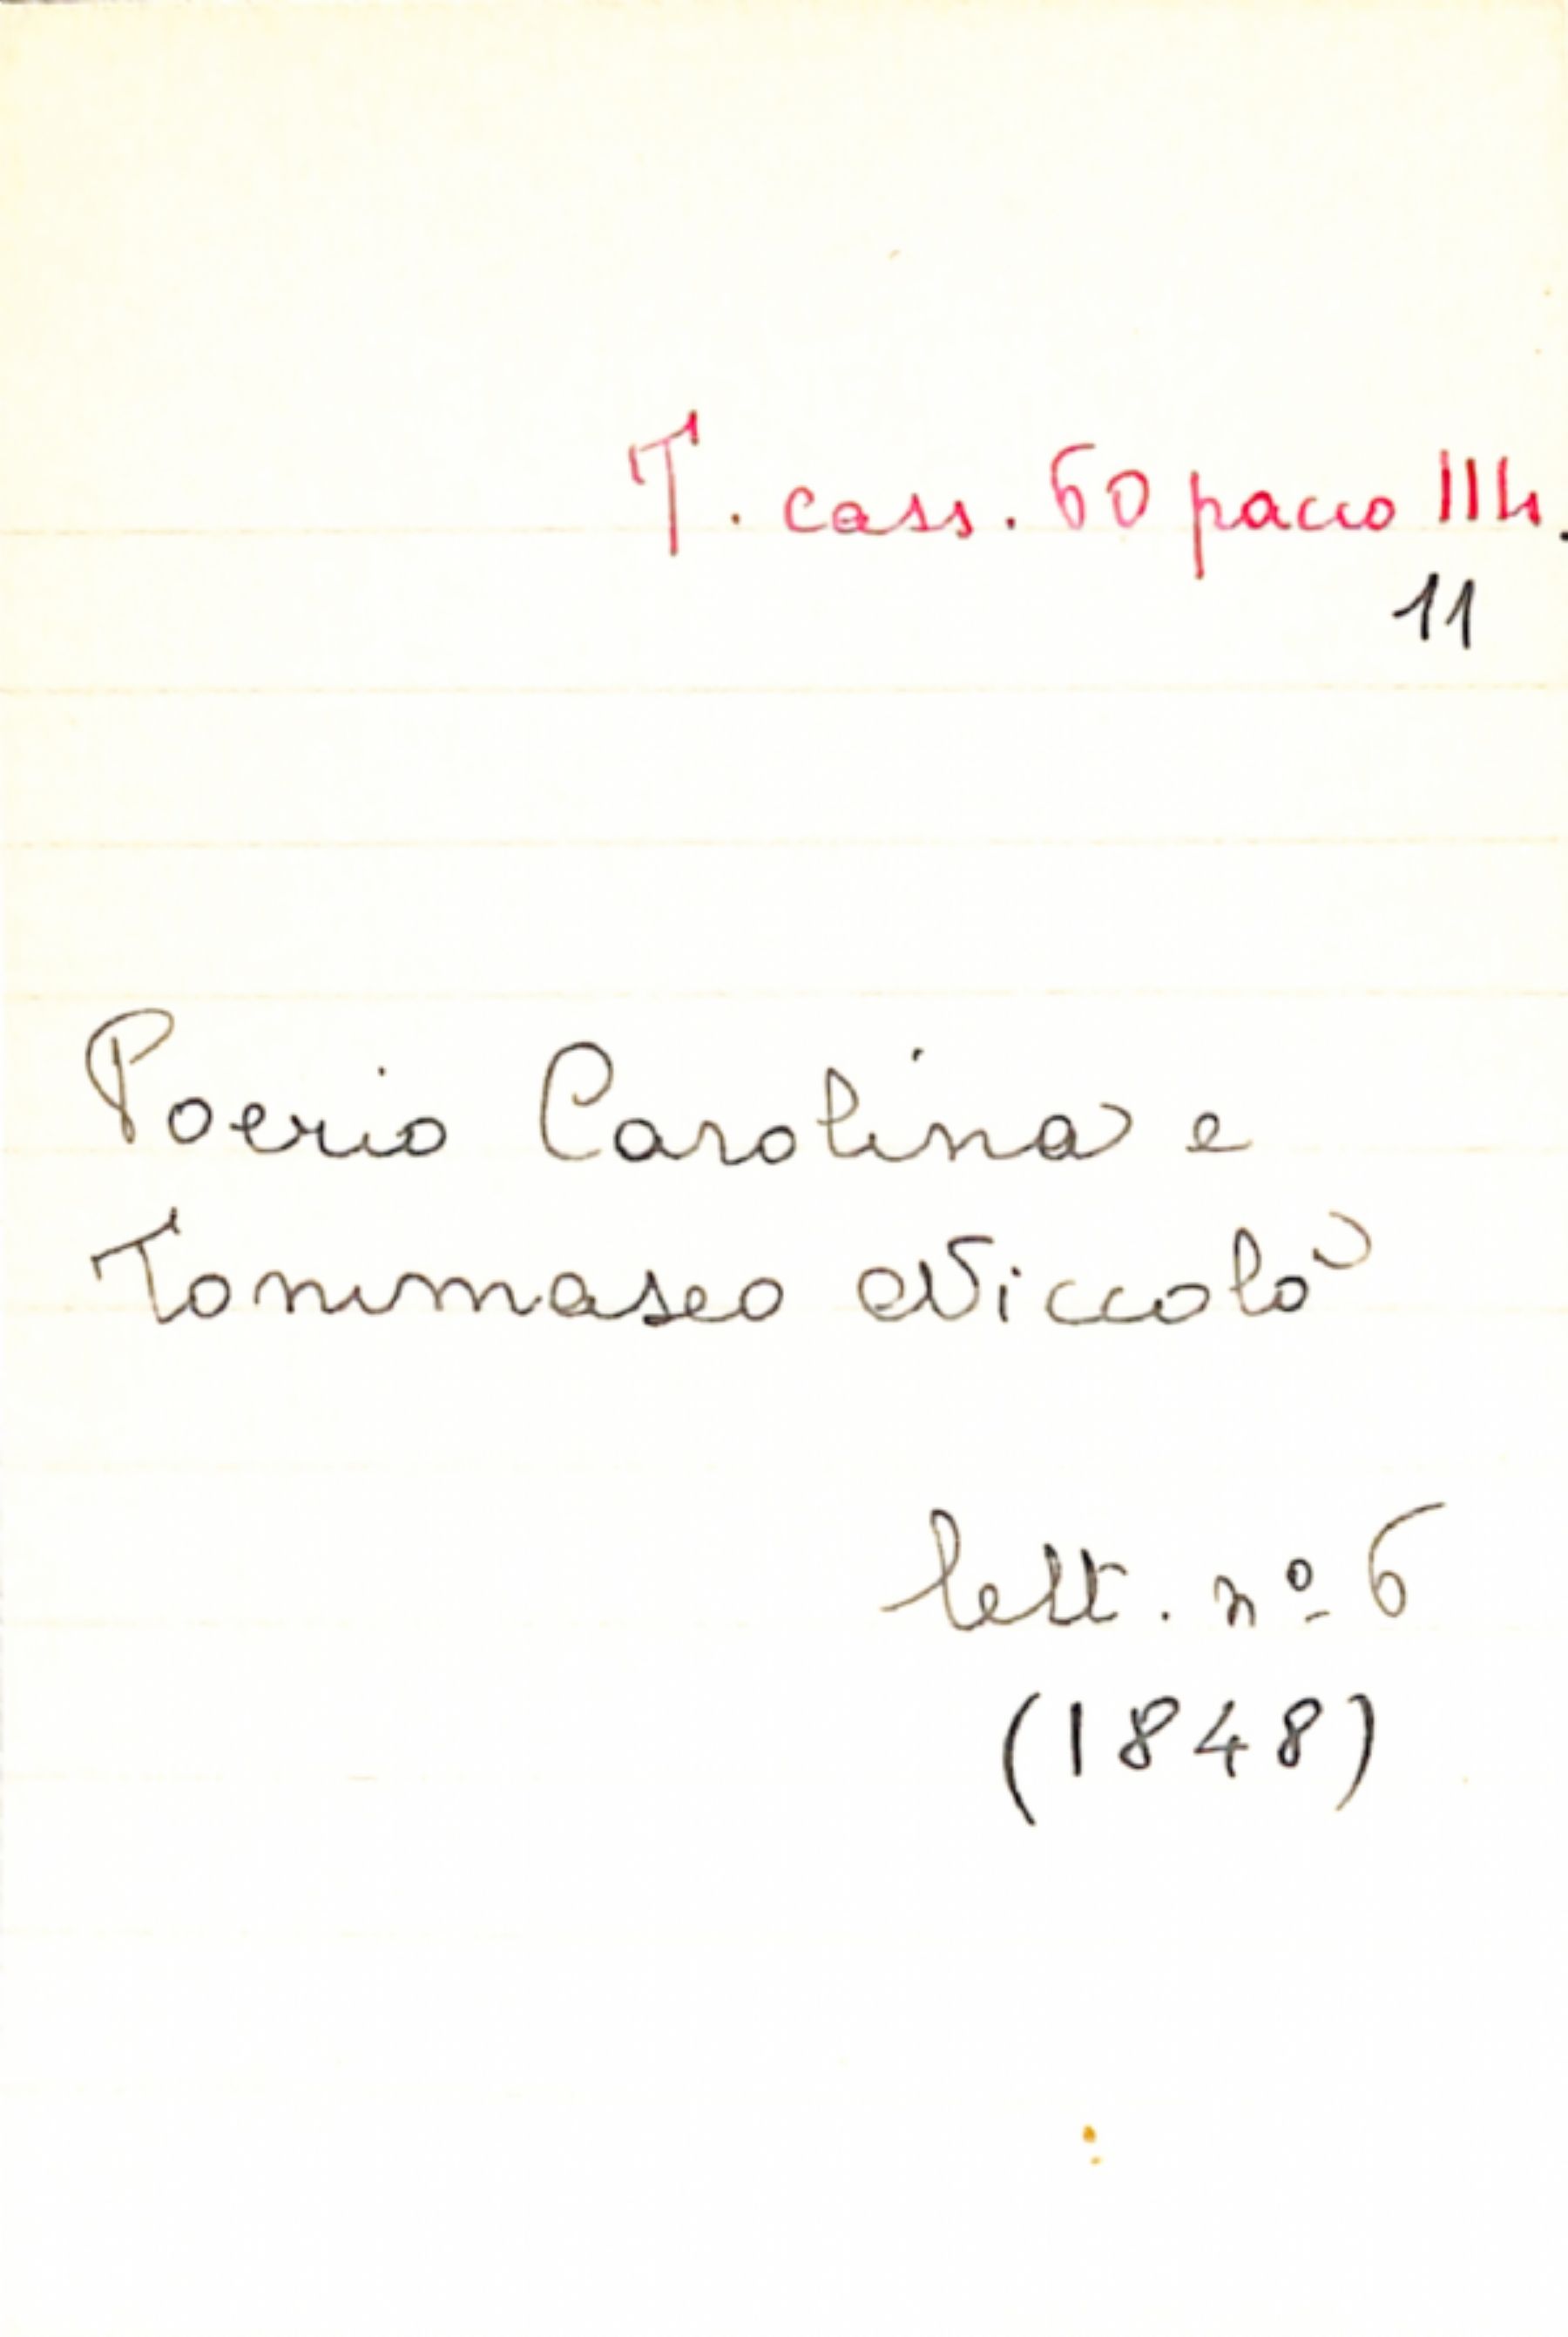 T. cass. 60 pacco 114.
11
Poerio Carolina e
Tommaseo Niccolò
lett. nº 6
(1848)